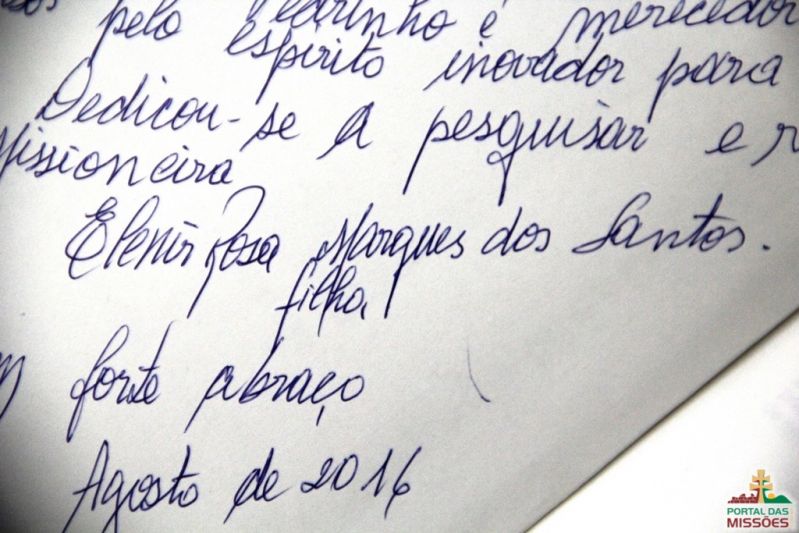 pelo carinho é merecedor
espírito inovador para
Dedicou-se a pesquisar e r
Missioneira
Elenir Rosa Marques dos Santos.
filha
forte abraço
Agosto de 2016
PORTAL DAS
MISSÕES